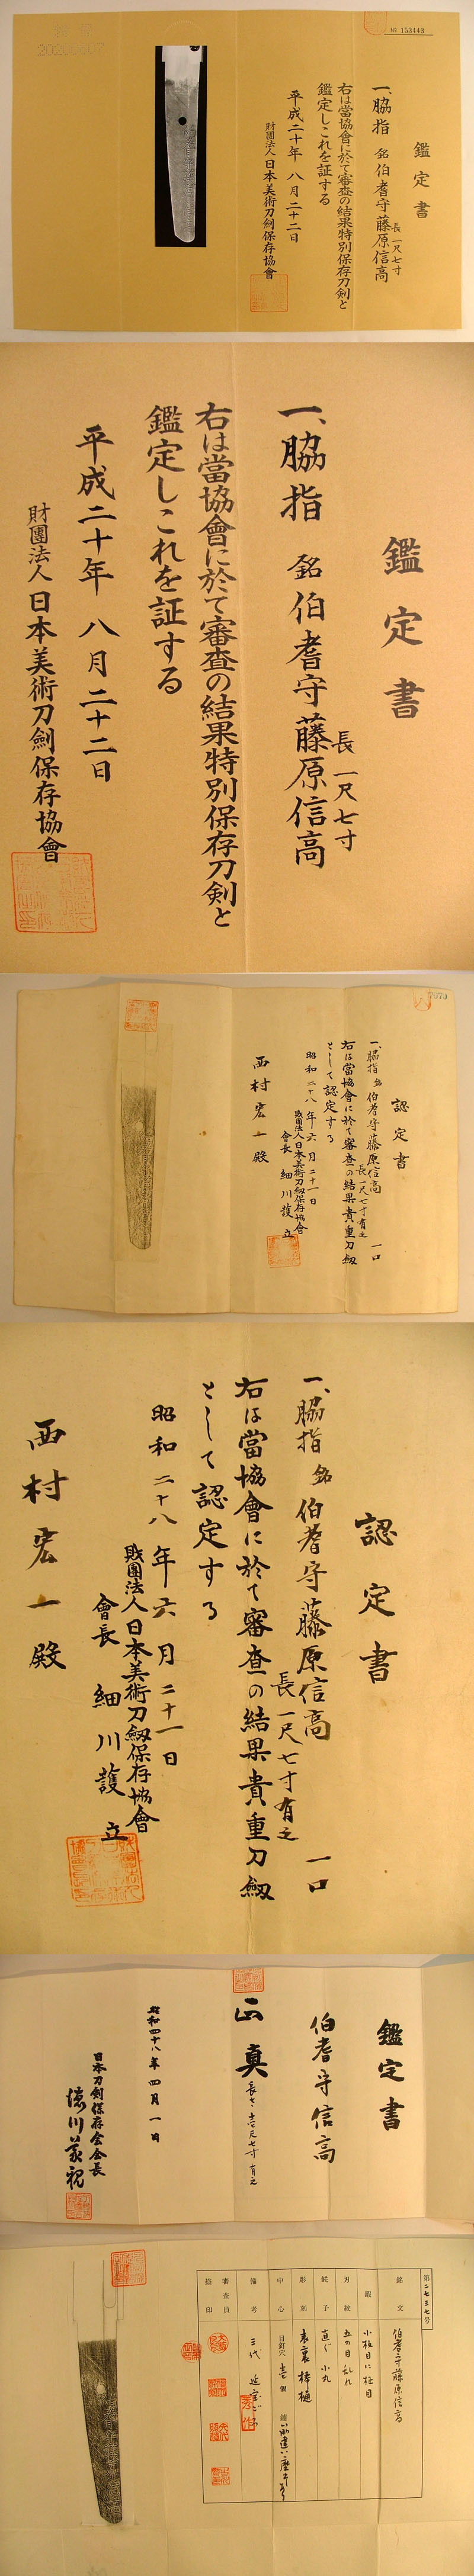 № 153443
鑑定書
一、脇指 銘 伯耆守藤原信高
長 一尺七寸
右は當協會に於て審査の結果特別保存刀剣と
鑑定しこれを証する
平成二十年 八月二十二日
財團法人 日本美術刀劍保存協會
鑑定書
一、脇指 銘 伯耆守藤原信高
長 一尺七寸
右は當協會に於て審査の結果特別保存刀剣と
鑑定しこれを証する
平成二十年 八月二十二日
財團法人 日本美術刀劍保存協會
認定書
一、脇指 銘 伯耆守藤原信高
長一尺七寸有之 一口
右は當協會に於て審査の結果貴重刀劔
として認定する
昭和二十八年六月二十一日
財團法人日本美術刀劔保存協會
會長 細川護立
西村宏一殿
認定書
一、脇指 銘 伯耆守藤原信高
長一尺七寸有之 一口
右は當協會に於て審査の結果貴重刀劔
として認定する
昭和二十八年六月二十一日
財團法人日本美術刀劔保存協會
會長 細川護立
西村宏一殿
鑑定書
伯耆守信高
正真
昭和四十八年四月一日
日本刀剣保存会会長
徳川義親
第二七三七号
銘文 伯耆守藤原信高
鍛 小板目に柾目
刃紋 五の目乱れ
鋩子 直ぐ小丸
彫刻 表裏棒樋
中心 目釘穴 壱個
備考 三代
審査員
捺印